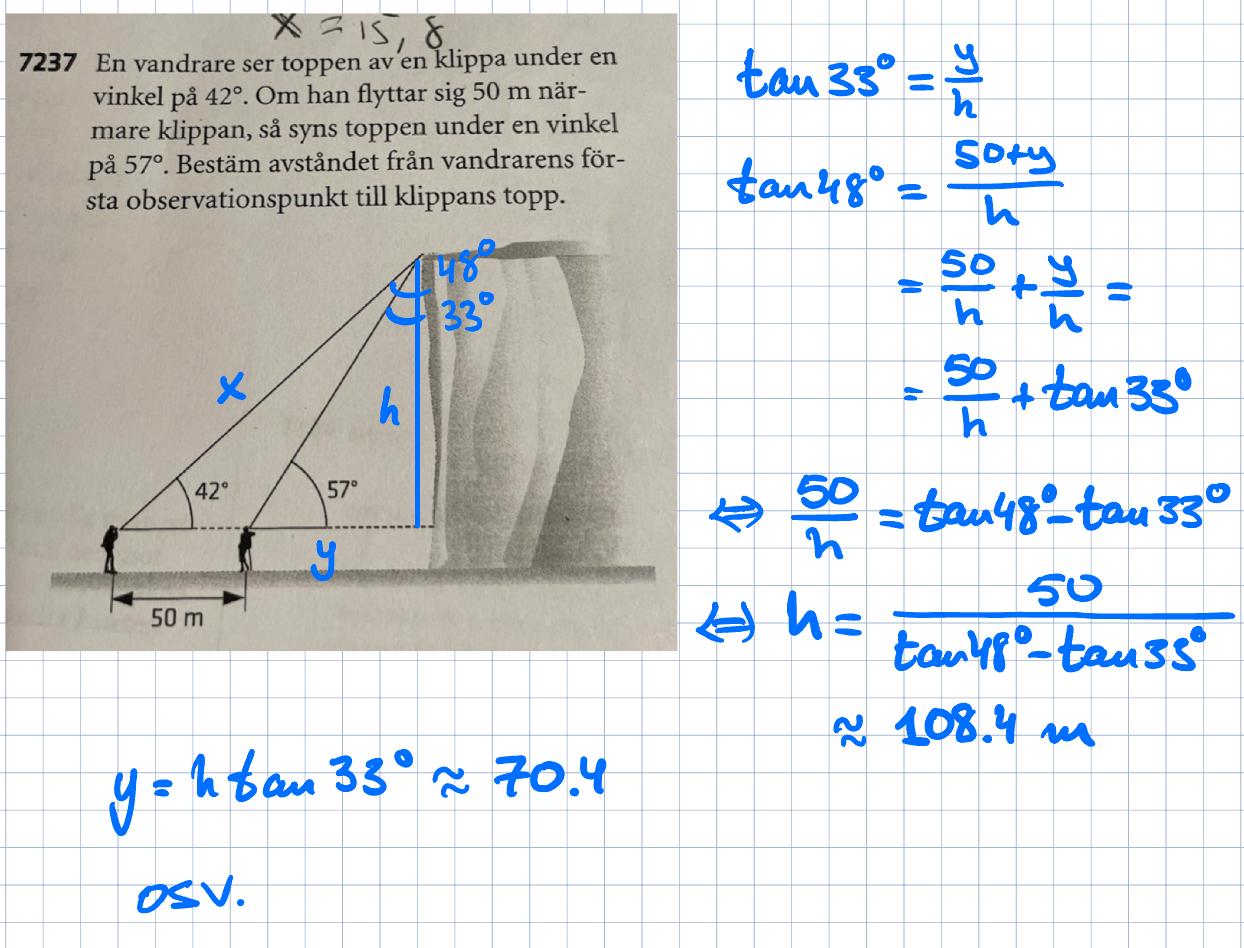 x = 15,8
7237 En vandrare ser toppen av en klippa under en
vinkel på 42°. Om han flyttar sig 50 m när-
mare klippan, så syns toppen under en vinkel
på 57°. Bestäm avståndet från vandrarens för-
sta observationspunkt till klippans topp.
48°
33°
x
h
42°
57°
y
50 m
y = h tan 33° ≈ 70.4
osv.
tan 33° = y/h
tan 48° = (50+y)/h
= 50/h + y/h =
= 50/h + tan 33°
⇔ 50/h = tan 48° - tan 33°
⇔ h = 50/(tan 48° - tan 33°)
≈ 108.4 m